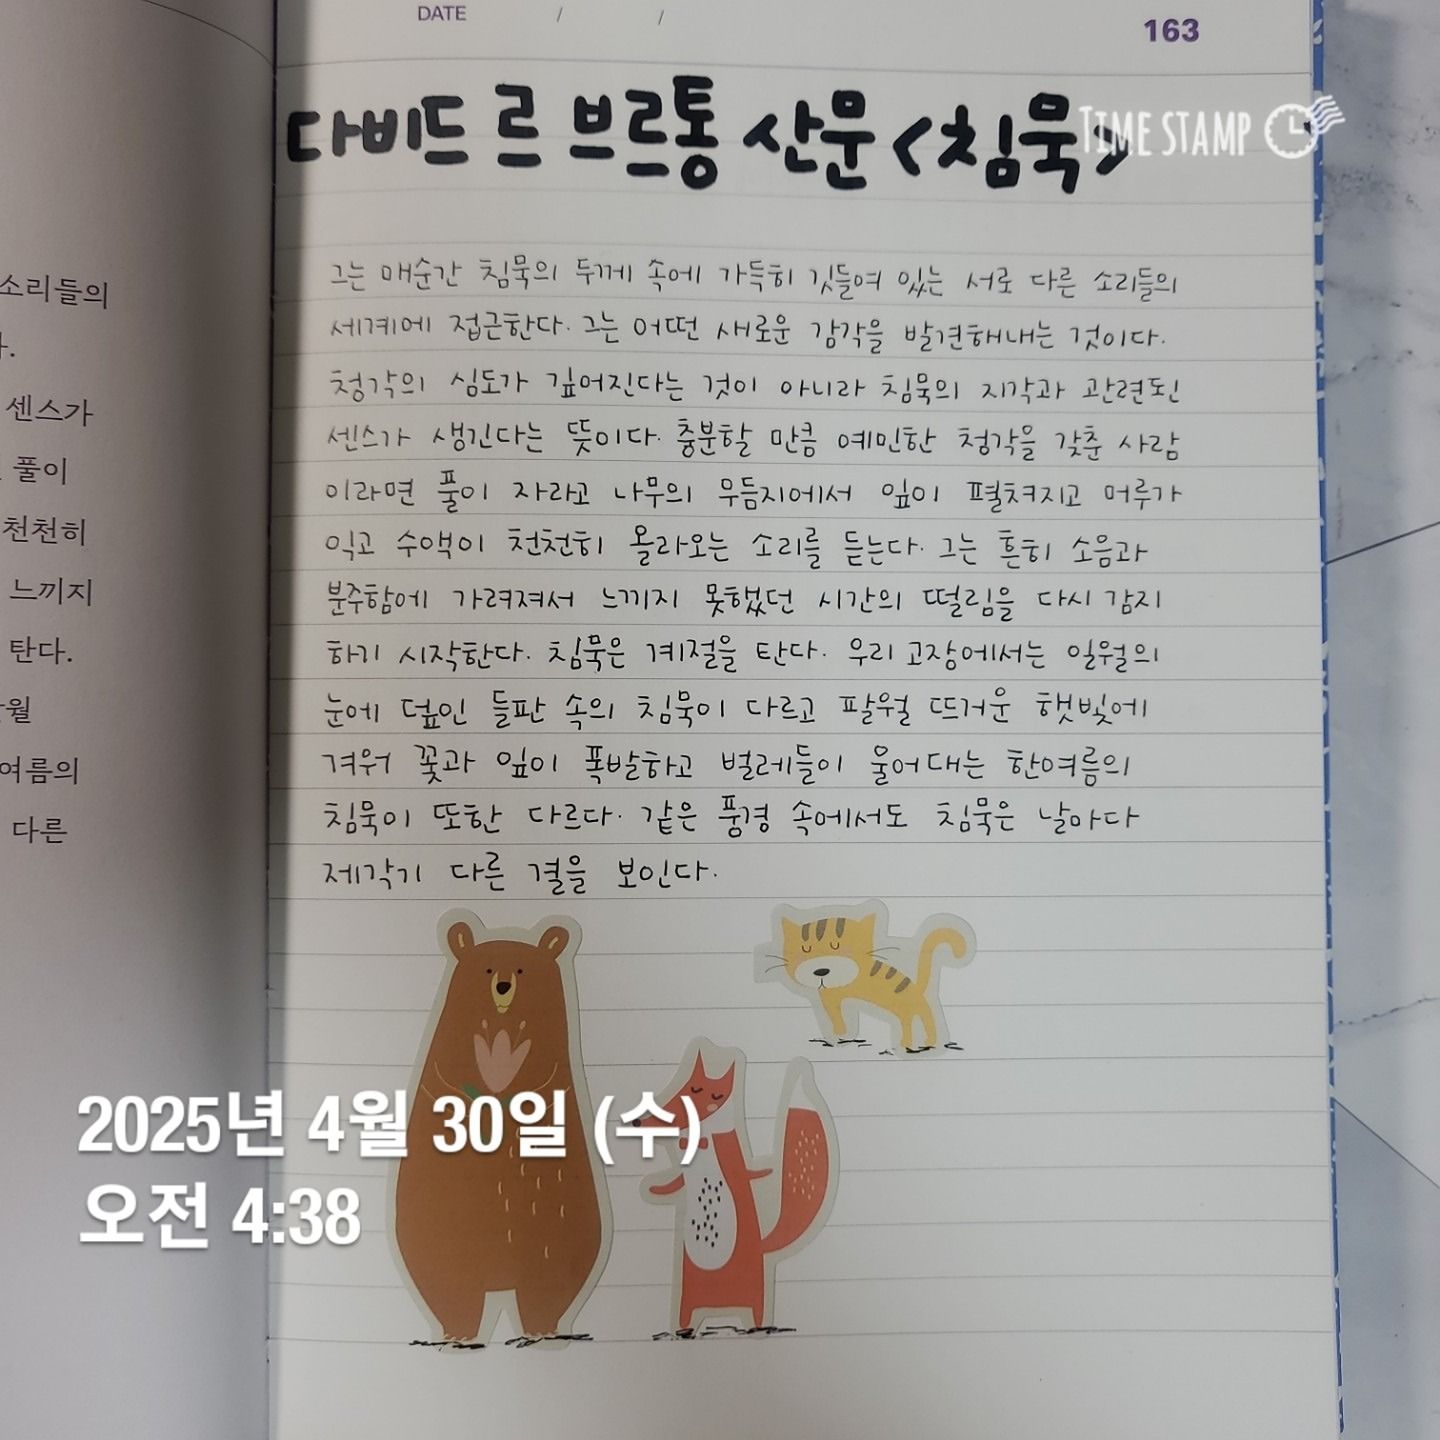 DATE / /
163
다비드 르 브르통 산문 <침묵>
TIME STAMP
그는 매순간 침묵의 두께 속에 가득히 깃들여 있는 서로 다른 소리들의
세계에 접근한다. 그는 어떤 새로운 감각을 발견해내는 것이다.
청각의 심도가 깊어진다는 것이 아니라 침묵의 지각과 관련된
센스가 생긴다는 뜻이다. 충분할 만큼 예민한 청각을 갖춘 사람
이라면 풀이 자라고 나무의 우듬지에서 잎이 펼쳐지고 머루가
익고 수액이 천천히 올라오는 소리를 듣는다. 그는 흔히 소음과
분주함에 가려져서 느끼지 못했던 시간의 떨림을 다시 감지
하기 시작한다. 침묵은 계절을 탄다. 우리 고장에서는 일월의
눈에 덮인 들판 속의 침묵이 다르고 팔월 뜨거운 햇빛에
겨워 꽃과 잎이 폭발하고 벌레들이 울어대는 한여름의
침묵이 또한 다르다. 같은 풍경 속에서도 침묵은 날마다
제각기 다른 결을 보인다.
소리들의
센스가
풀이
천천히
느끼지
탄다.
여름의
다른
2025년 4월 30일 (수)
오전 4:38